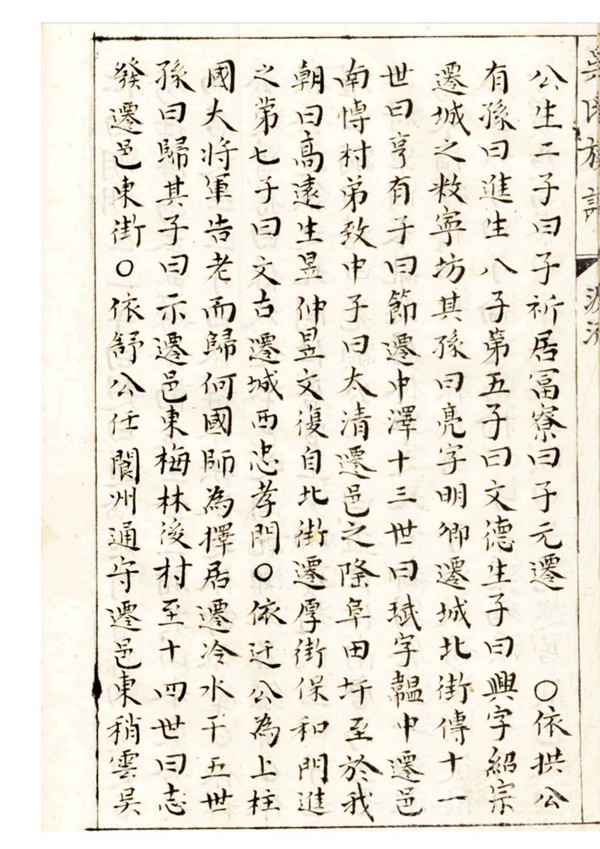 吳氏族譜 源流
公生二子曰子祈居冨寮曰子元遷 〇依拱公
有孫曰進生八子第五子曰文德生子曰興字紹宗
遷城之敉寧坊其孫曰亮字明卿遷城北街傳十一
世曰亨有子曰節遷中澤十三世曰珷字韞中遷邑
南愽村弟致中子曰太清遷邑之隆阜田圩至於我
朝曰高遠生昱仲昱文復自北街遷厚街保和門進
之第七子曰文古遷城西忠孝門〇依迂公為上柱
國大將軍告老而歸何國師為擇居遷冷水干五世
孫曰歸其子曰示遷邑東梅林後村至十四世曰志
發遷邑東街〇依舒公任閬州通守遷邑東稍雲吳